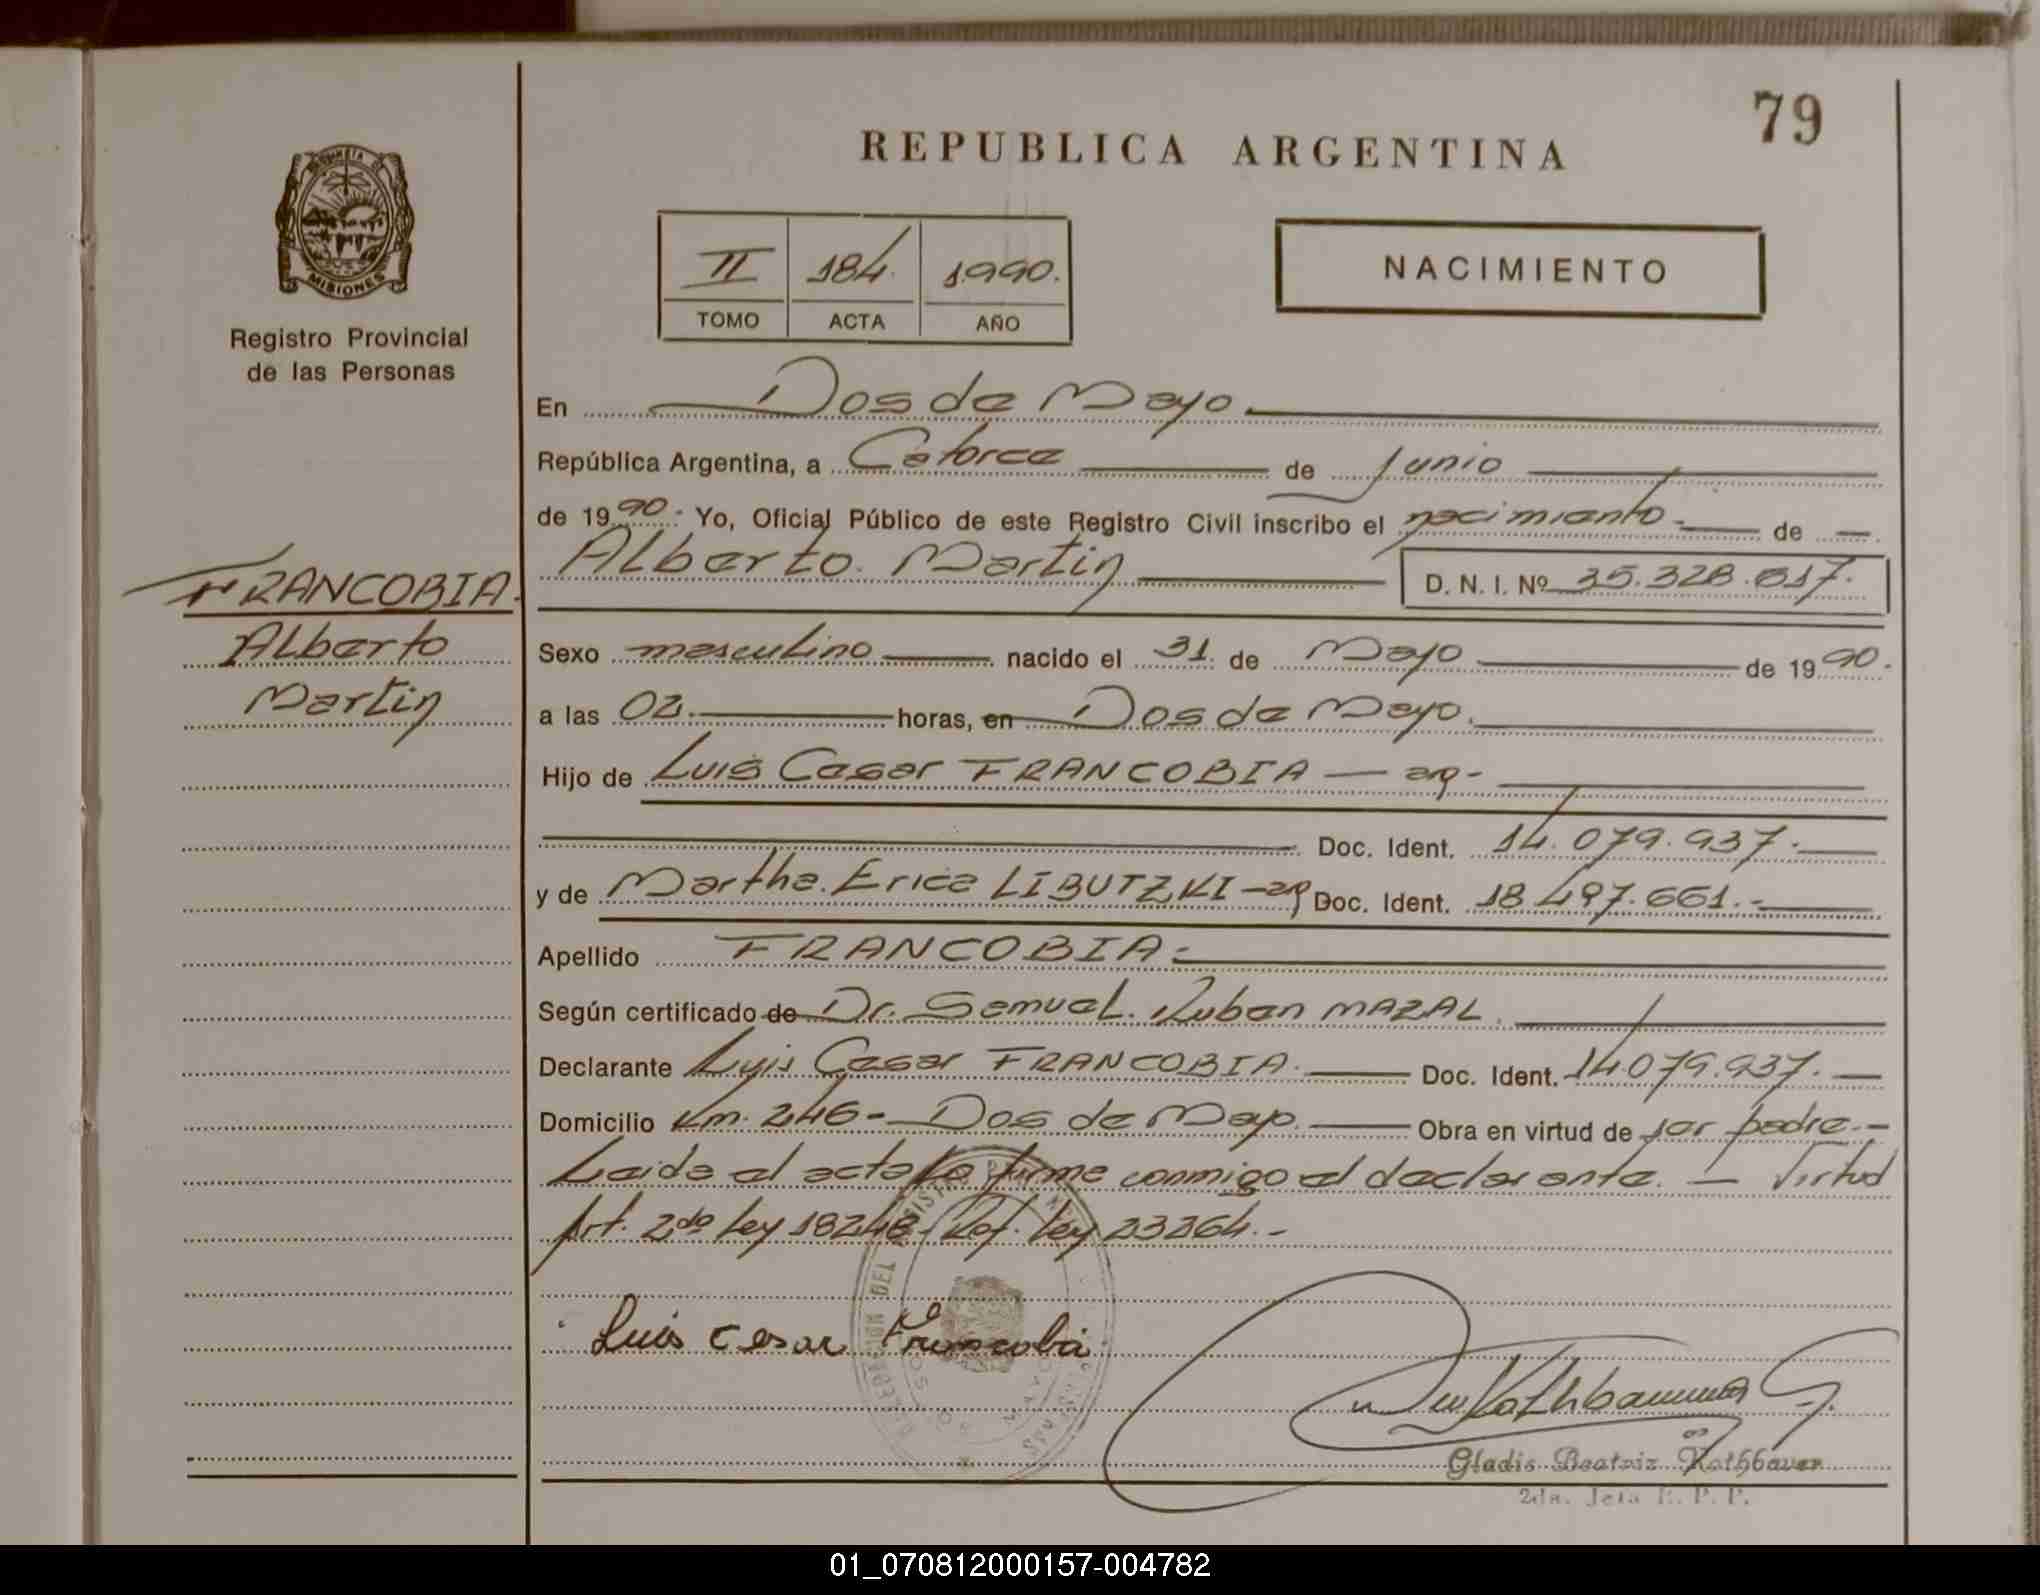 79
REPUBLICA ARGENTINA
MISIONES
Registro Provincial
de las Personas
II 184. 1.990.
TOMO ACTA AÑO
NACIMIENTO
En Dos de Mayo.
República Argentina, a Catorce de Junio
de 1990. Yo, Oficial Público de este Registro Civil inscribo el nacimiento de
Alberto Martin D. N. I. Nº 35.328.617.
FRANCOBIA.
Alberto
Martin
Sexo masculino nacido el 31. de Mayo de 1990.
a las 02. horas, en Dos de Mayo.
Hijo de Luis Cesar FRANCOBIA — arg-
Doc. Ident. 14.079.937.
y de Martha Erica LIBUTZKI - arg Doc. Ident. 18.497.661.-
Apellido FRANCOBIA.
Según certificado de Dr. Samuel Ruben MAZAL.
Declarante Luis Cesar FRANCOBIA. Doc. Ident. 14.079.937.
Domicilio Km. 246 - Dos de Mayo. Obra en virtud de ser padre.-
Leida el acta la firma conmigo el declarante. — Virtud
Art. 2do Ley 18248. Ref. Ley 23264.-
Luis Cesar Francobia
Gladis Beatriz Rothbauer
2da. Jefa R. P. P.
01_070812000157-004782